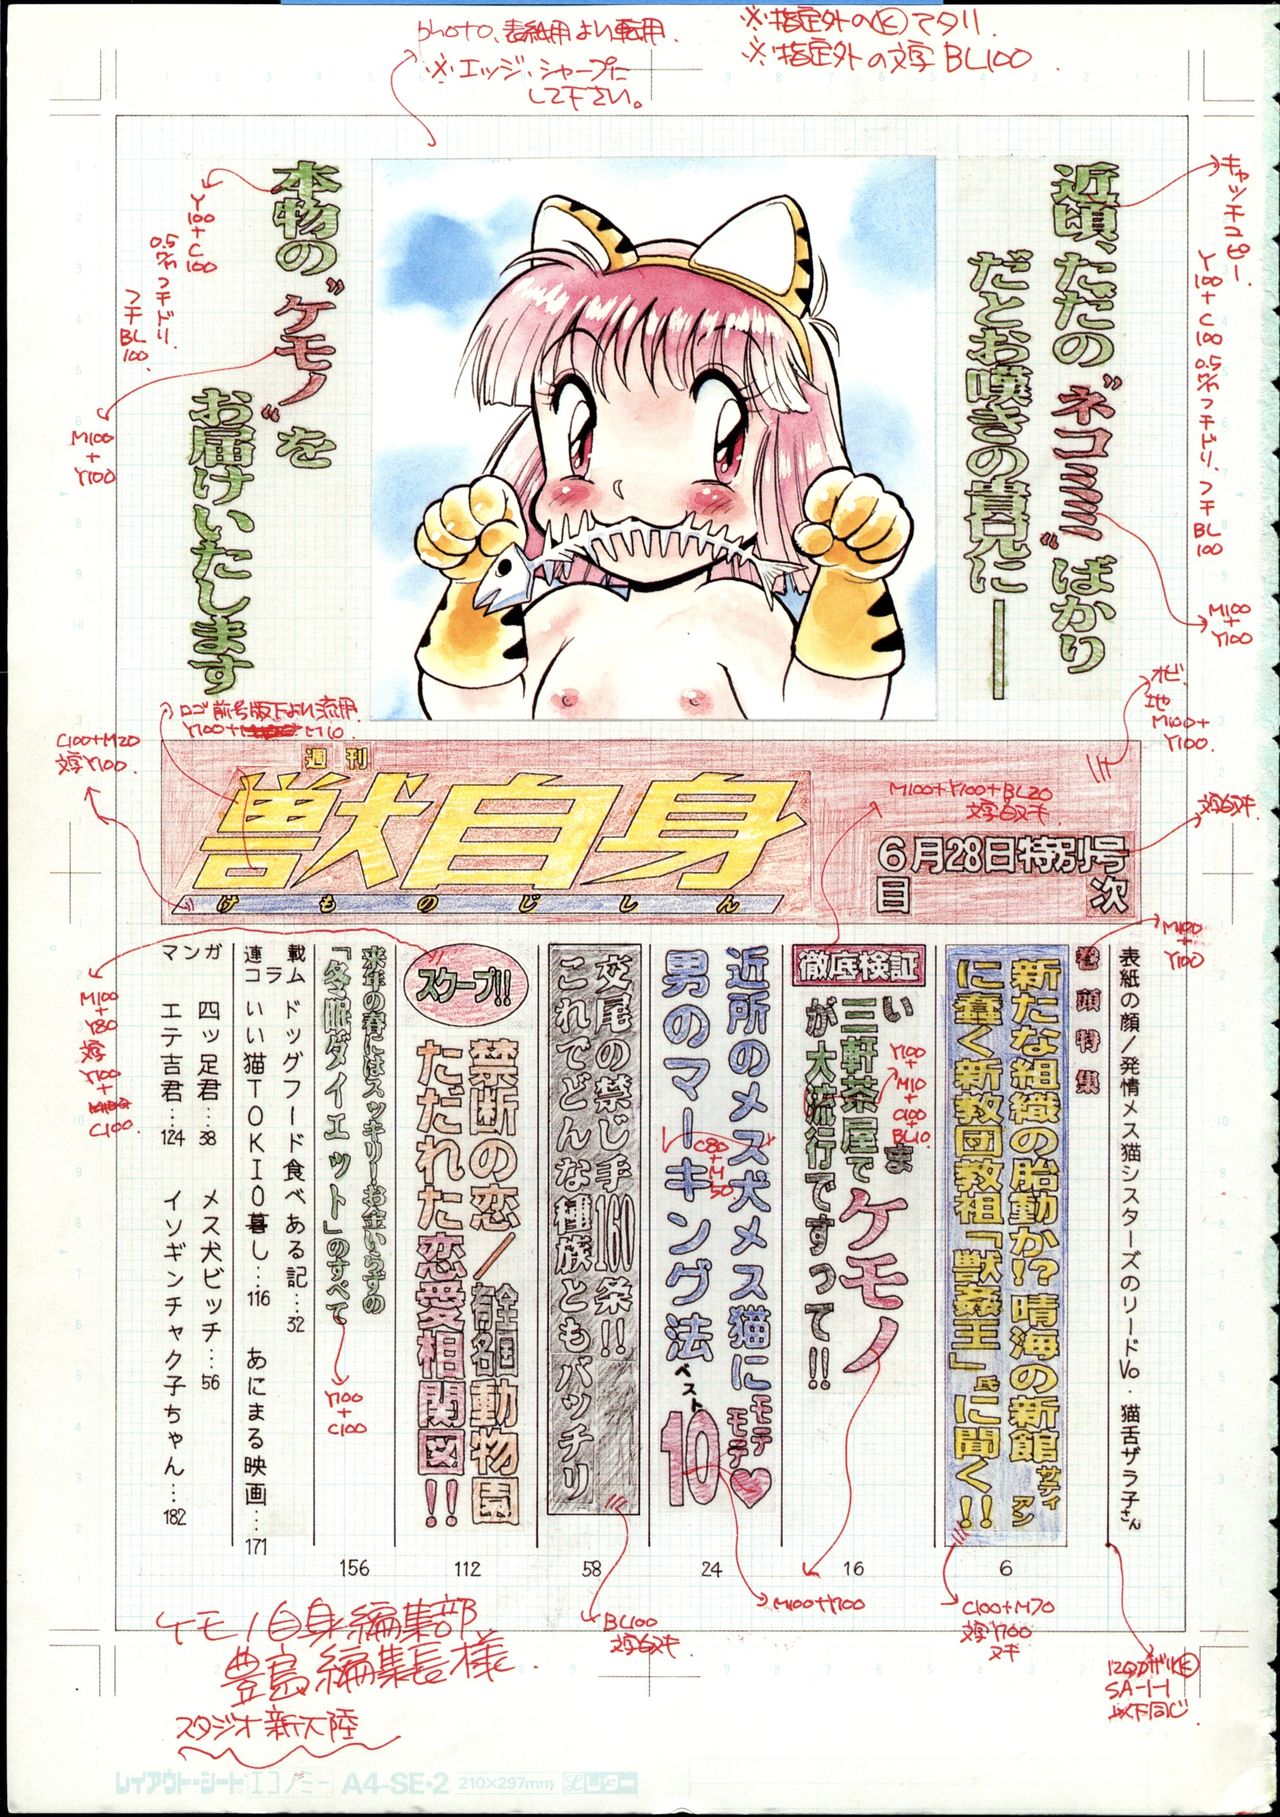 photo、表紙用より転用.
※エッジ、シャープに
して下さい。
※指定外の文字BL100
キャッチコピー
Y100+C100 0.5%フチドリ、フチBL100
近頃、ただの"ネコミミ"ばかり
だとお嘆きの貴兄に——
M100+Y100
本物の"ケモノ"を
お届けいたします
Y100+C100
フチBL100
M100+Y100
オビ
地
M100+Y100
ロゴ前号版下より流用
C100+M20
文字Y100
週刊
獣自身
けものじしん
M100+Y100+BL20
文字白ヌキ
文字白ヌキ
6月28日特別号
目次
M100+Y100
表紙の顔/発情メス猫シスターズのリードVo.猫舌ザラ子さん
巻頭特集
新たな組織の胎動か!?晴海の新館サティアン
に蠢く新教団教祖「獣姦王」氏に聞く!!
6
徹底検証
いま
三軒茶屋でケモノ
が大流行ですって!!
Y100+M10+C100+BL10
16
近所のメス犬メス猫にモテモテ♥
男のマーキング法ベスト10
C80+M50
24
交尾の禁じ手160条!!
これでどんな種族ともバッチリ
58
スクープ!!
禁断の恋/全国有名動物園
ただれた恋愛相関図!!
112
来年の春にはスッキリ!お金いらずの
「冬眠ダイエット」のすべて
156
Y100+C100
連載コラム
ドッグフード食べある記…32
いい猫TOKIO暮し…116
あにまる映画…171
マンガ
四ッ足君…38
メス犬ビッチ…56
エテ吉君…124
イソギンチャク子ちゃん…182
M100+Y80
文字Y100+C100
BL100
文字白ヌキ
M100+Y100
C100+M70
文字Y100
ヌキ
SA-1-1
以下同じ
ケモノ自身編集部
豊島編集長様
スタジオ新大陸
レイアウト・シート エコノミー A4-SE・2 210×297mm